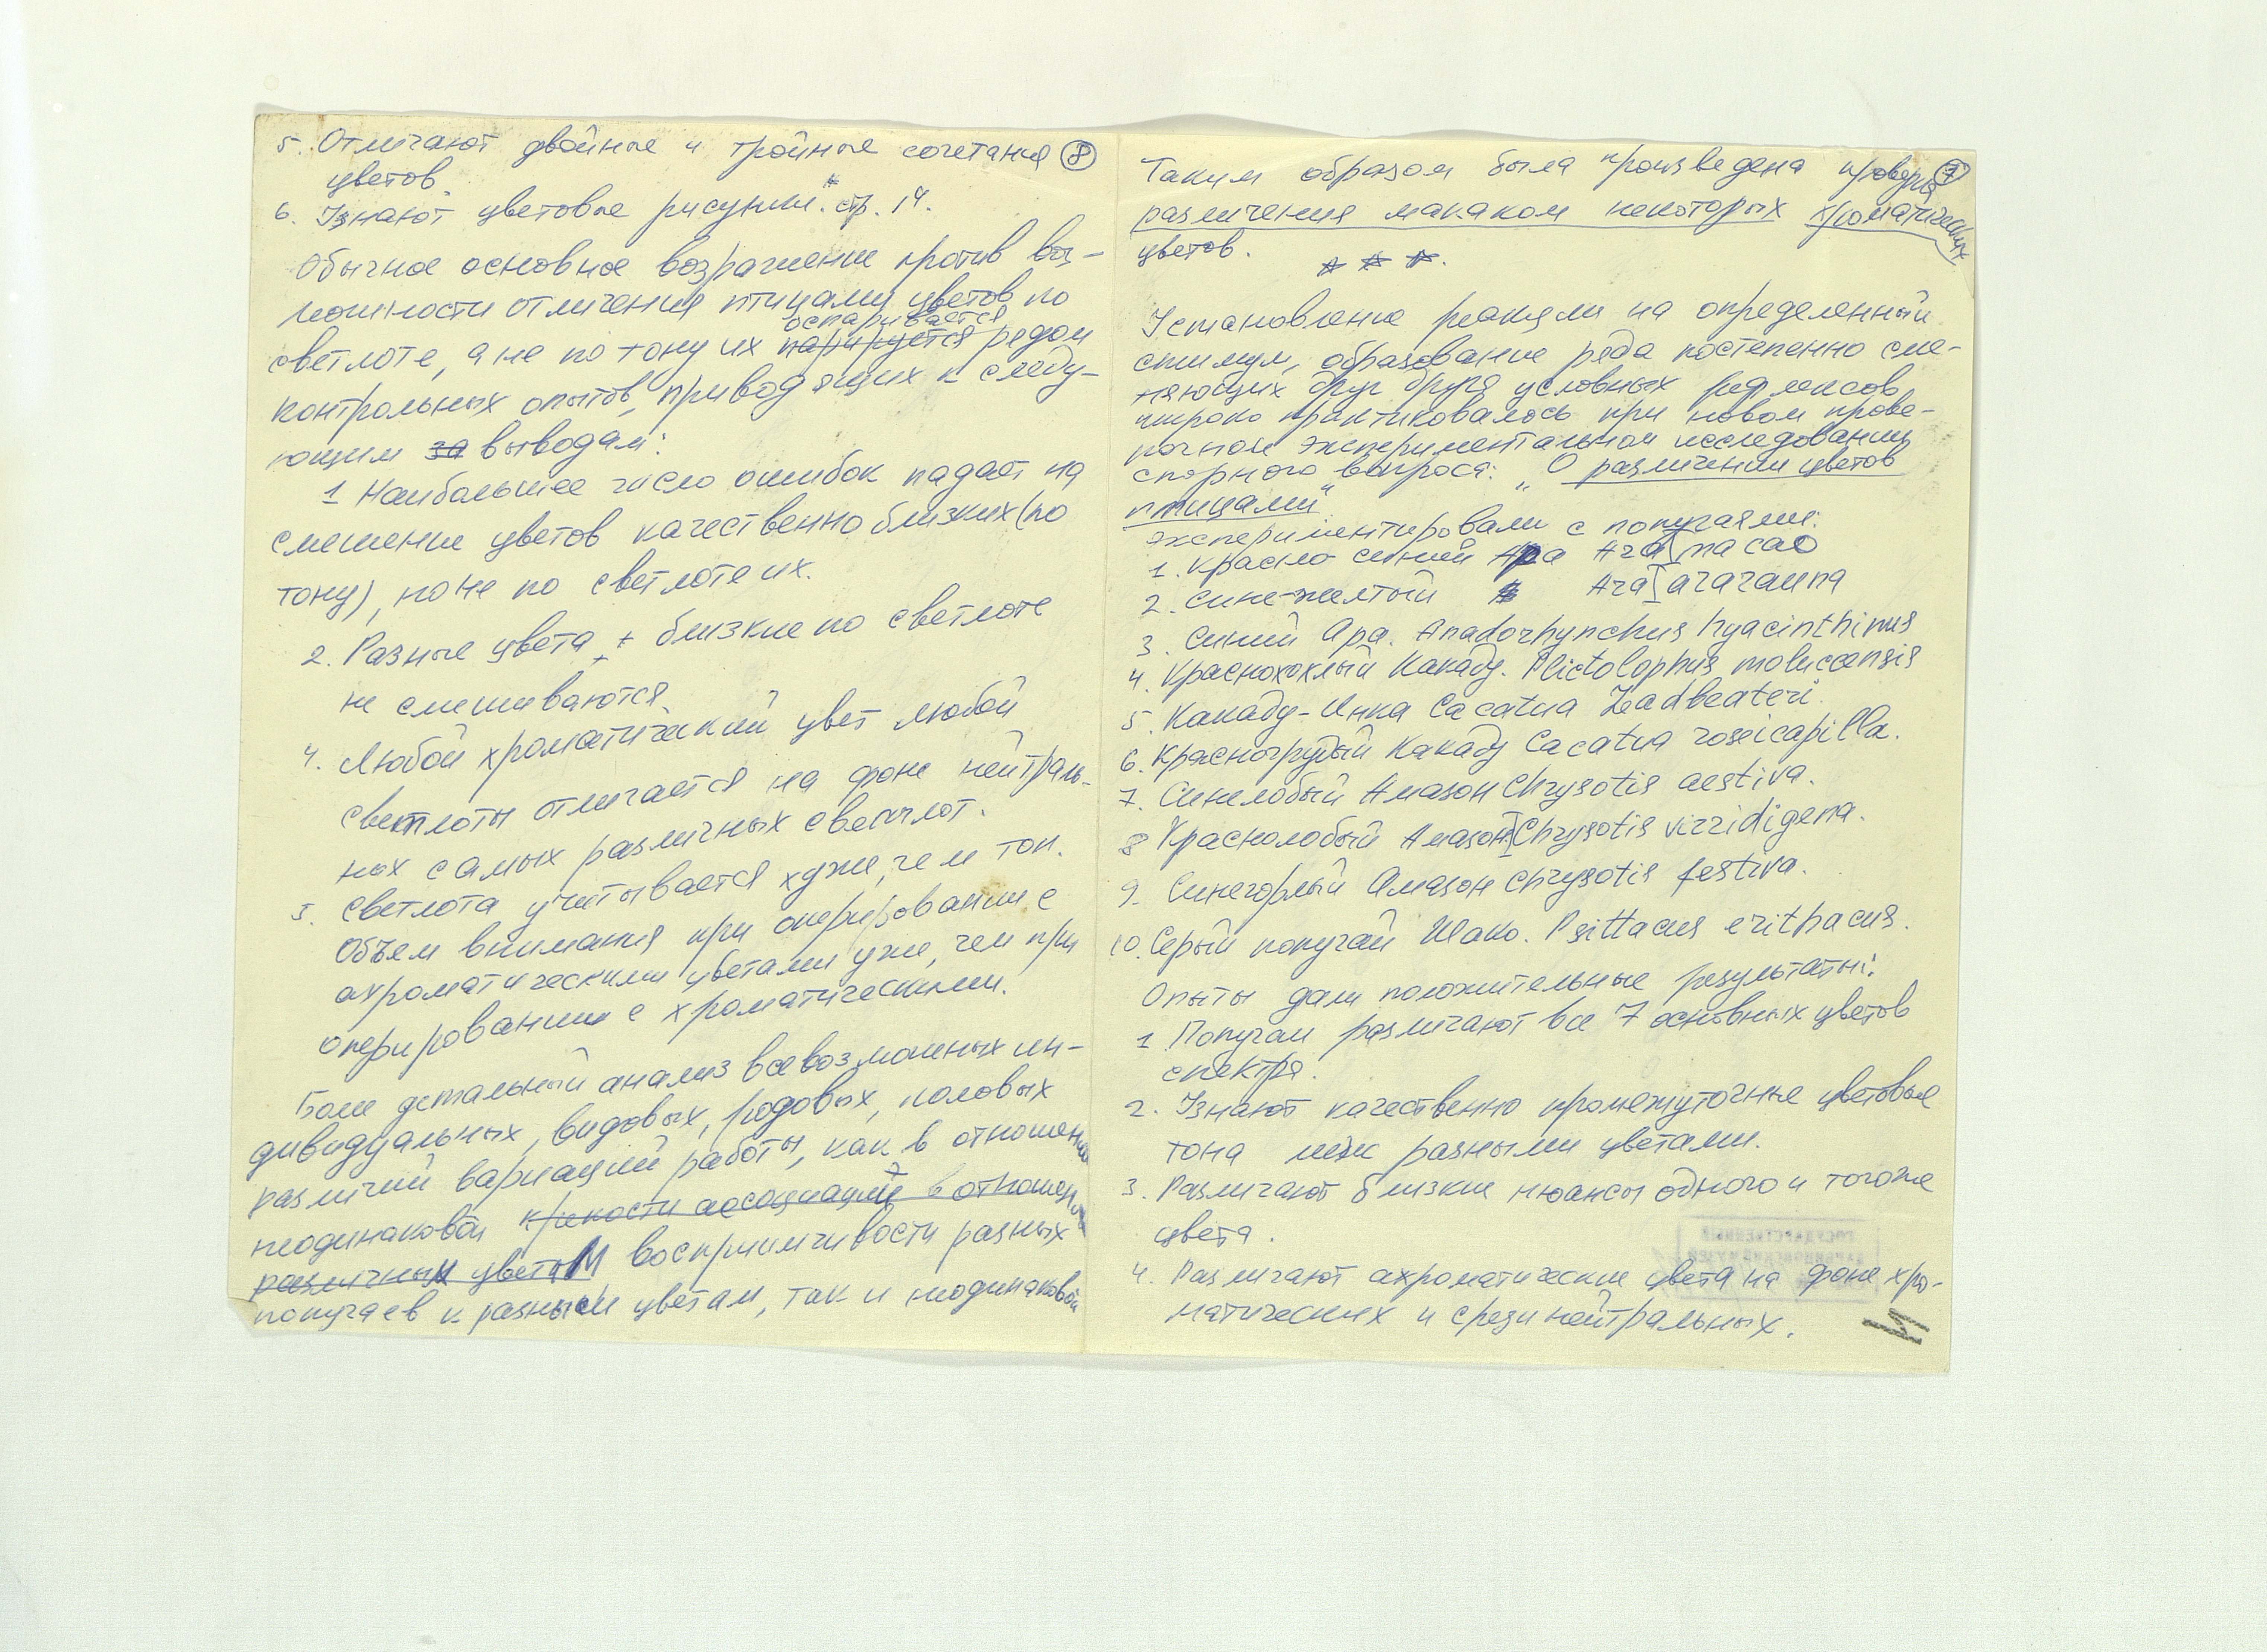 5. Отличают двойные и тройные сочетания ⑧
цветов.
6. Узнают цветовые рисунки." стр. 14.
Обычное основное возражение против воз-
можности отличения птицами цветов по
оспаривается
светлоте, а не по тону их парируется рядом
контрольных опытов, приводящих к следу-
ющим за выводам:
1 Наибольшее число ошибок падает на
смешение цветов качественно близких (по
тону), но не по светлоте их.
2. Разные цвета ± близкие по светлоте
не смешиваются.
4. Любой хроматический цвет любой
светлоты отличается на фоне нейтраль-
ных самых различных светлот.
5. Светлота учитывается хуже, чем тон.
Объем внимания при оперировании с
ахроматическими цветами уже, чем при
оперировании с хроматическими.
Более детальный анализ всевозможных ин-
дивидуальных, видовых, родовых, половых
различий вариаций работы, как в отношении
неодинаковой крепости ассоциаций в отношении
различных цветам восприимчивости разных
попугаев к разным цветам, так и неодинаковой
Таким образом была произведена проверка ⑦
различения макаком некоторых хроматических
цветов.
* * *.
Установление реакции на определенный
стимул, образование ряда постепенно сме-
няющих друг друга условных рефлексов
широко практиковалось при новом прове-
рочном экспериментальном исследовании
спорного вопроса: „О различении цветов
птицами"
экспериментировали с попугаями:
1. Красно синий Ара Ara macao
2. Сине-желтый " Ara araraunа
3. Синий Ара. Anadorhynchus hyacinthinus
4. Краснохохлый Какаду. Plictolophus moluccensis
5. Какаду-Инка Cacatua Leadbeateri.
6. Красногрудый Какаду Cacatua roseicapilla.
7. Синелобый Амазон Chrysotis aestiva.
8 Краснолобый Амазон Chrysotis virridigena.
9. Синегорлый Амазон Chrysotis festiva.
10. Серый попугай Жако. Psittacus eritpacus.
Опыты дали положительные результаты:
1 Попугаи различают все 7 основных цветов
спектра.
2. Узнают качественно промежуточные цветовые
тона меж разными цветами.
3. Различают близкие нюансы одного и того же
цвета.
4. Различают ахроматические цвета на фоне хро-
матических и среди нейтральных.